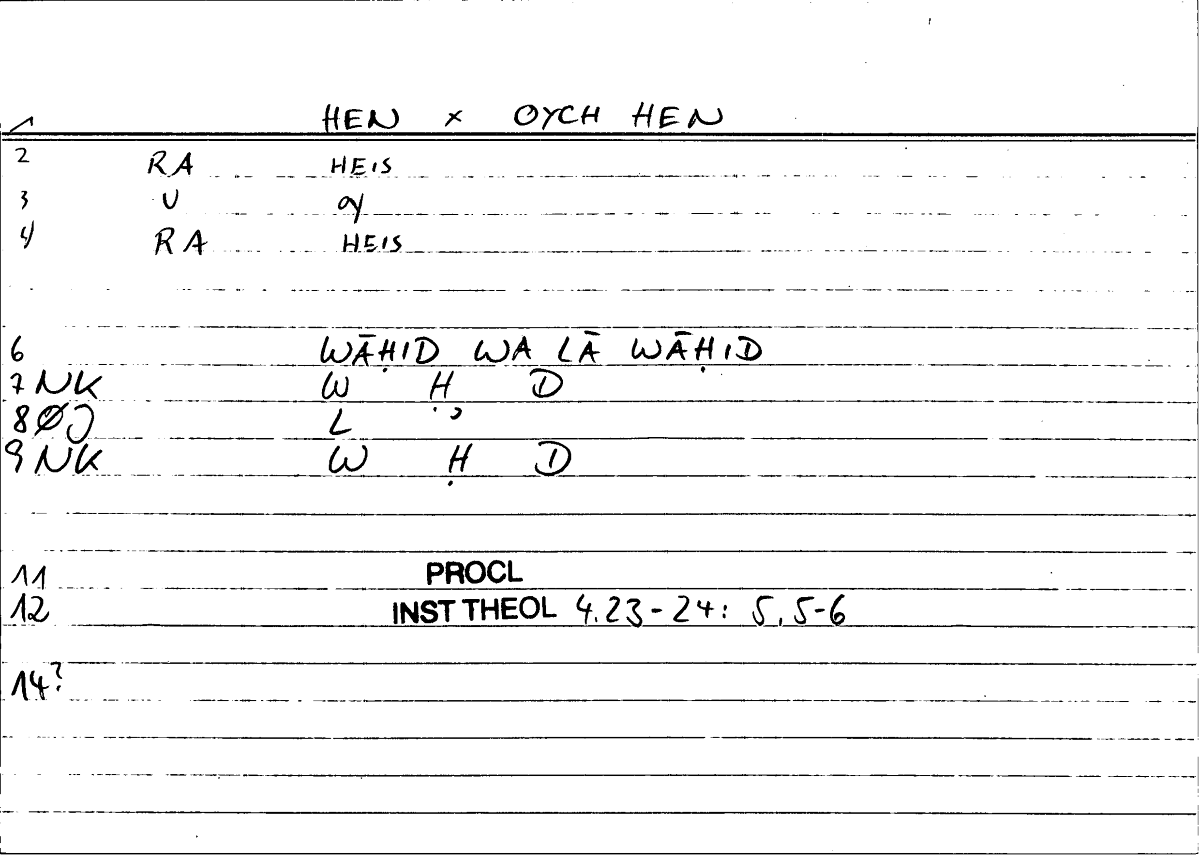 1 HEN × OYCH HEN
2 RA HEIS
3 U oy
4 RA HEIS
6 WĀḤID WA LĀ WĀḤID
7 NK W Ḥ D
8 ØJ L ʾ
9 NK W Ḥ D
11 PROCL
12 INST THEOL 4.23-24: 5,5-6
14?